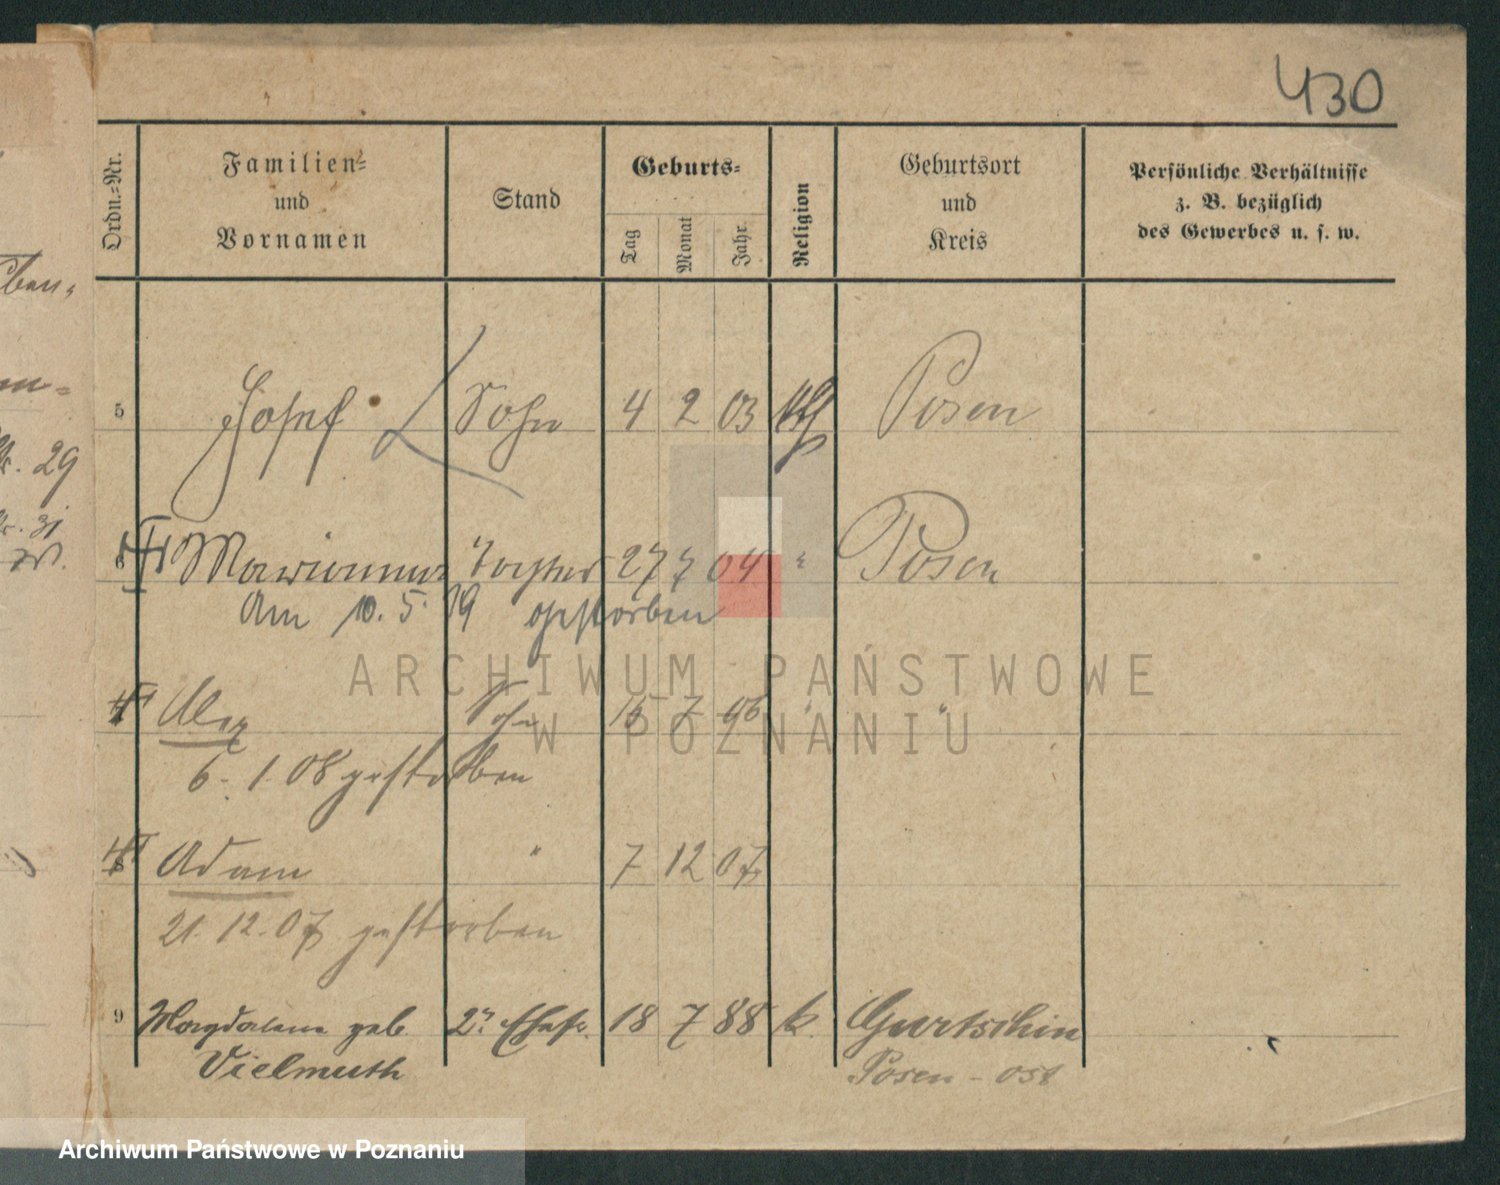 430
Ordn.-Nr.
Familien-
und
Vornamen
Stand
Geburts-
Tag
Monat
Jahr
Religion
Geburtsort
und
Kreis
Persönliche Verhältnisse
z. B. bezüglich
des Gewerbes u. s. w.
5 Josef Sohn 4 2 03 kth Posen
6 Marianna Tochter 27 7 04 " Posen
Am 10. 5. 19 gestorben
7 Alex Sohn 15 7 06 " "
6. 1. 08 gestorben
8 Adam " 7 12 07
21. 12. 07 gestorben
9 Magdalena geb. 2. Ehefr. 18 7 88 k. Gurtschin
Vielmuth Posen-Ost
29
31
ARCHIWUM PAŃSTWOWE
W POZNANIU
Archiwum Państwowe w Poznaniu